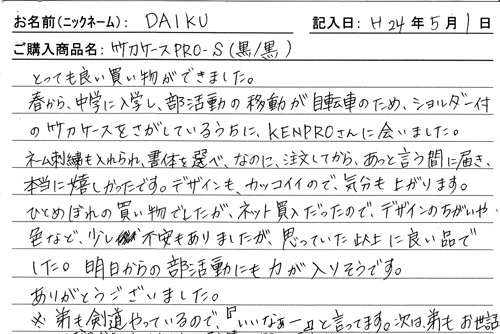 お名前(ニックネーム): DAIKU 記入日: H24年5月1日
ご購入商品名: 竹刀ケースPRO-S(黒/黒)
とっても良い買い物ができました。
春から、中学に入学し、部活動の移動が自転車のため、ショルダー付
の竹刀ケースをさがしているうちに、KENPROさんに会いました。
ネーム刺繍も入れられ、書体を選べ、なのに、注文してから、あっと言う間に届き、
本当に嬉しかったです。デザインも、カッコイイので、気分も上がります。
ひとめぼれの買い物でしたが、ネット買入だったので、デザインのちがいや
色など、少し不安もありましたが、思っていた以上に良い品で
した。明日からの部活動にも力が入りそうです。
ありがとうございました。
※弟も剣道やっているので、『いいなぁー』と言ってます。次は、弟もお世話